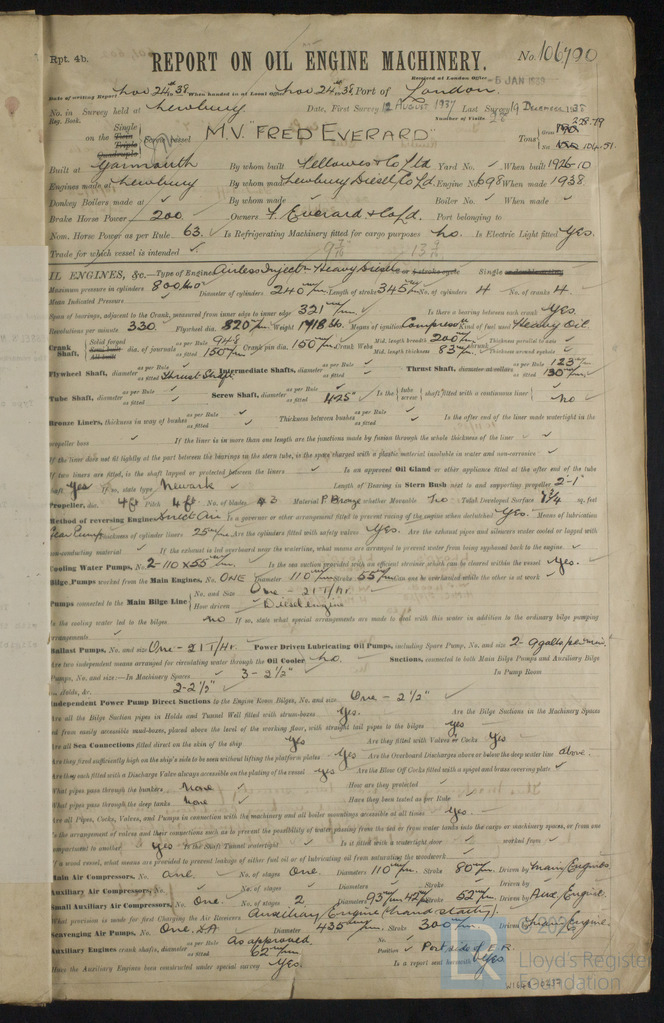 Rpt. 4b.
REPORT ON OIL ENGINE MACHINERY.
No. 106790
Received at London Office
Date of writing Report Nov 24th 38 When handed in at Local Office Nov 24th 38 Port of London.
No. in Survey held at Newbury Date, First Survey 12 AUGUST 1937 Last Survey 19 December 1938
Reg. Book. Number of Visits 26
on the Single Screw vessel M.V. "FRED EVERARD" Tons
Built at Yarmouth By whom built Fellowes & Co Ltd Yard No. When built 1926-10
Engines made at Newbury By whom made Newbury Diesel Co Ld. Engine No 698 When made 1938.
Donkey Boilers made at By whom made Boiler No. When made
Brake Horse Power 200. Owners F. Everard & Co Ld. Port belonging to
Nom. Horse Power as per Rule 63. Is Refrigerating Machinery fitted for cargo purposes No. Is Electric Light fitted Yes.
Trade for which vessel is intended
OIL ENGINES, &c.—Type of Engines Airless Injection Heavy Diesel Single
Maximum pressure in cylinders Diameter of cylinders 240 m/m Length of stroke 345 m/m No. of cylinders 4 No. of cranks 4.
Mean Indicated Pressure
Span of bearings, adjacent to the Crank, measured from inner edge to inner edge 321 m/m. Is there a bearing between each crank Yes.
Revolutions per minute 330. Flywheel dia. 820 m/m. Weight Means of ignition Compression Kind of fuel used Heavy Oil
Crank Shaft, Solid forged dia. of journals as per Rule as fitted 150 m/m. Crank pin dia. 150 m/m. Crank Webs Mid. length breadth 200 m/m Mid. length thickness 83 m/m. Thickness parallel to axis Thickness around eyehole
Flywheel Shaft, diameter as per Rule as fitted Thrust Shaft Intermediate Shafts, diameter as per Rule as fitted Thrust Shaft, diameter at collars as per Rule 123 m/m as fitted 130 m/m.
Tube Shaft, diameter as per Rule as fitted Screw Shaft, diameter as per Rule as fitted 4.25" Is the tube screw shaft fitted with a continuous liner No
Bronze Liners, thickness in way of bushes as per Rule as fitted Thickness between bushes as per Rule as fitted Is the after end of the liner made watertight in the
propeller boss If the liner is in more than one length are the junctions made by fusion through the whole thickness of the liner
If the liner does not fit tightly at the part between the bearings in the stern tube, is the space charged with a plastic material insoluble in water and non-corrosive
If two liners are fitted, is the shaft lapped or protected between the liners Is an approved Oil Gland or other appliance fitted at the after end of the tube
shaft Yes If so, state type Newark Length of Bearing in Stern Bush next to and supporting propeller 2'-1"
Propeller, dia. 4ft Pitch 4 ft No. of blades 3 Material P. Bronze whether Moveable No Total Developed Surface sq. feet
Method of reversing Engines Direct Air Is a governor or other arrangement fitted to prevent racing of the engine when declutched Yes. Means of lubrication
Gear Pump Thickness of cylinder liners 25 m/m Are the cylinders fitted with safety valves Yes. Are the exhaust pipes and silencers water cooled or lagged with
non-conducting material If the exhaust is led overboard near the waterline, what means are arranged to prevent water being syphoned back to the engine
Cooling Water Pumps, No. 2-110 x 55 m/m. Is the sea suction provided with an efficient strainer which can be cleared within the vessel Yes.
Bilge Pumps worked from the Main Engines, No. ONE Diameter 110 m/m Stroke 55 m/m Can one be overhauled while the other is at work
Pumps connected to the Main Bilge Line No. and Size One - 21 T/Hr.
How driven Diesel engine
Is the cooling water led to the bilges No. If so, state what special arrangements are made to deal with this water in addition to the ordinary bilge pumping
arrangements
Ballast Pumps, No. and size One - 21 T/Hr. Power Driven Lubricating Oil Pumps, including Spare Pump, No. and size
Are two independent means arranged for circulating water through the Oil Cooler No. Suctions, connected to both Main Bilge Pumps and Auxiliary Bilge
Pumps, No. and size:—In Machinery Spaces 3 - 2½" In Pump Room
In Holds, &c. 2-2½"
Independent Power Pump Direct Suctions to the Engine Room Bilges, No. and size One - 2½"
Are all the Bilge Suction pipes in Holds and Tunnel Well fitted with strum-boxes Yes. Are the Bilge Suctions in the Machinery Spaces
led from easily accessible mud-boxes, placed above the level of the working floor, with straight tail pipes to the bilges Yes
Are all Sea Connections fitted direct on the skin of the ship Yes Are they fitted with Valves or Cocks Yes
Are they fixed sufficiently high on the ship's side to be seen without lifting the platform plates Yes Are the Overboard Discharges above or below the deep water line above.
Are they each fitted with a Discharge Valve always accessible on the plating of the vessel yes Are the Blow Off Cocks fitted with a spigot and brass covering plate
What pipes pass through the bunkers None How are they protected
What pipes pass through the deep tanks None Have they been tested as per Rule
Are all Pipes, Cocks, Valves, and Pumps in connection with the machinery and all boiler mountings accessible at all times Yes.
Is the arrangement of valves and their connections such as to prevent the possibility of water passing from the sea or from water tanks into the cargo or machinery spaces, or from one
compartment to another Yes Is the Shaft Tunnel watertight Is it fitted with a watertight door worked from
If a wood vessel, what means are provided to prevent leakage of either fuel oil or of lubricating oil from saturating the woodwork
Main Air Compressors, No. One. No. of stages One. Diameters 110 m/m. Stroke 80 m/m. Driven by Main Engines
Auxiliary Air Compressors, No. No. of stages Diameters Stroke Driven by
Small Auxiliary Air Compressors, No. One. No. of stages 2 Diameters 93 m/m 42 m/m Stroke 52 m/m. Driven by Aux. Engine.
What provision is made for first Charging the Air Receivers Auxiliary Engine (hand starting).
Scavenging Air Pumps, No. One. DA Diameter 435 m/m Stroke 300 m/m. Driven by Engine.
Auxiliary Engines crank shafts, diameter as per Rule As approved. as fitted 62 m/m No. Position Port side of E.R.
Have the Auxiliary Engines been constructed under special survey Yes. Is a report sent herewith Yes
© 2021
LR
Lloyd's Register
Foundation